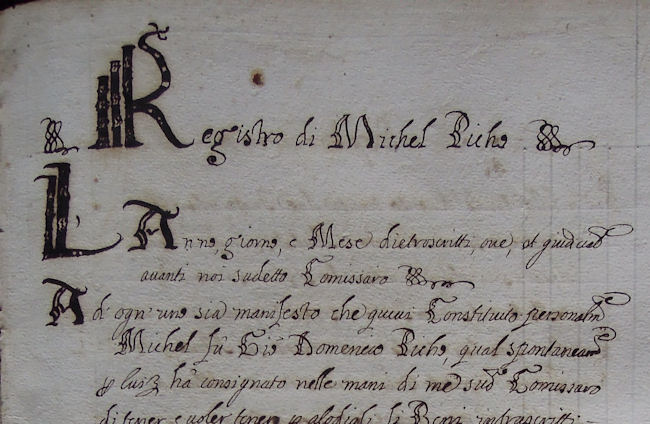 Registro di Michel Piche
L Anno, giorno, e Mese dietroscritti, oue, et
auanti noi sudetto Comissaro
Ad ogn' uno sia manifesto che quiui Constituito personalm.e
Michel fu Gio Domenico Piche, qual spontaneam.e
ha consignato nelle mani di me sud.o Comissaro
di tener e uoler tener li Beni infrascritti